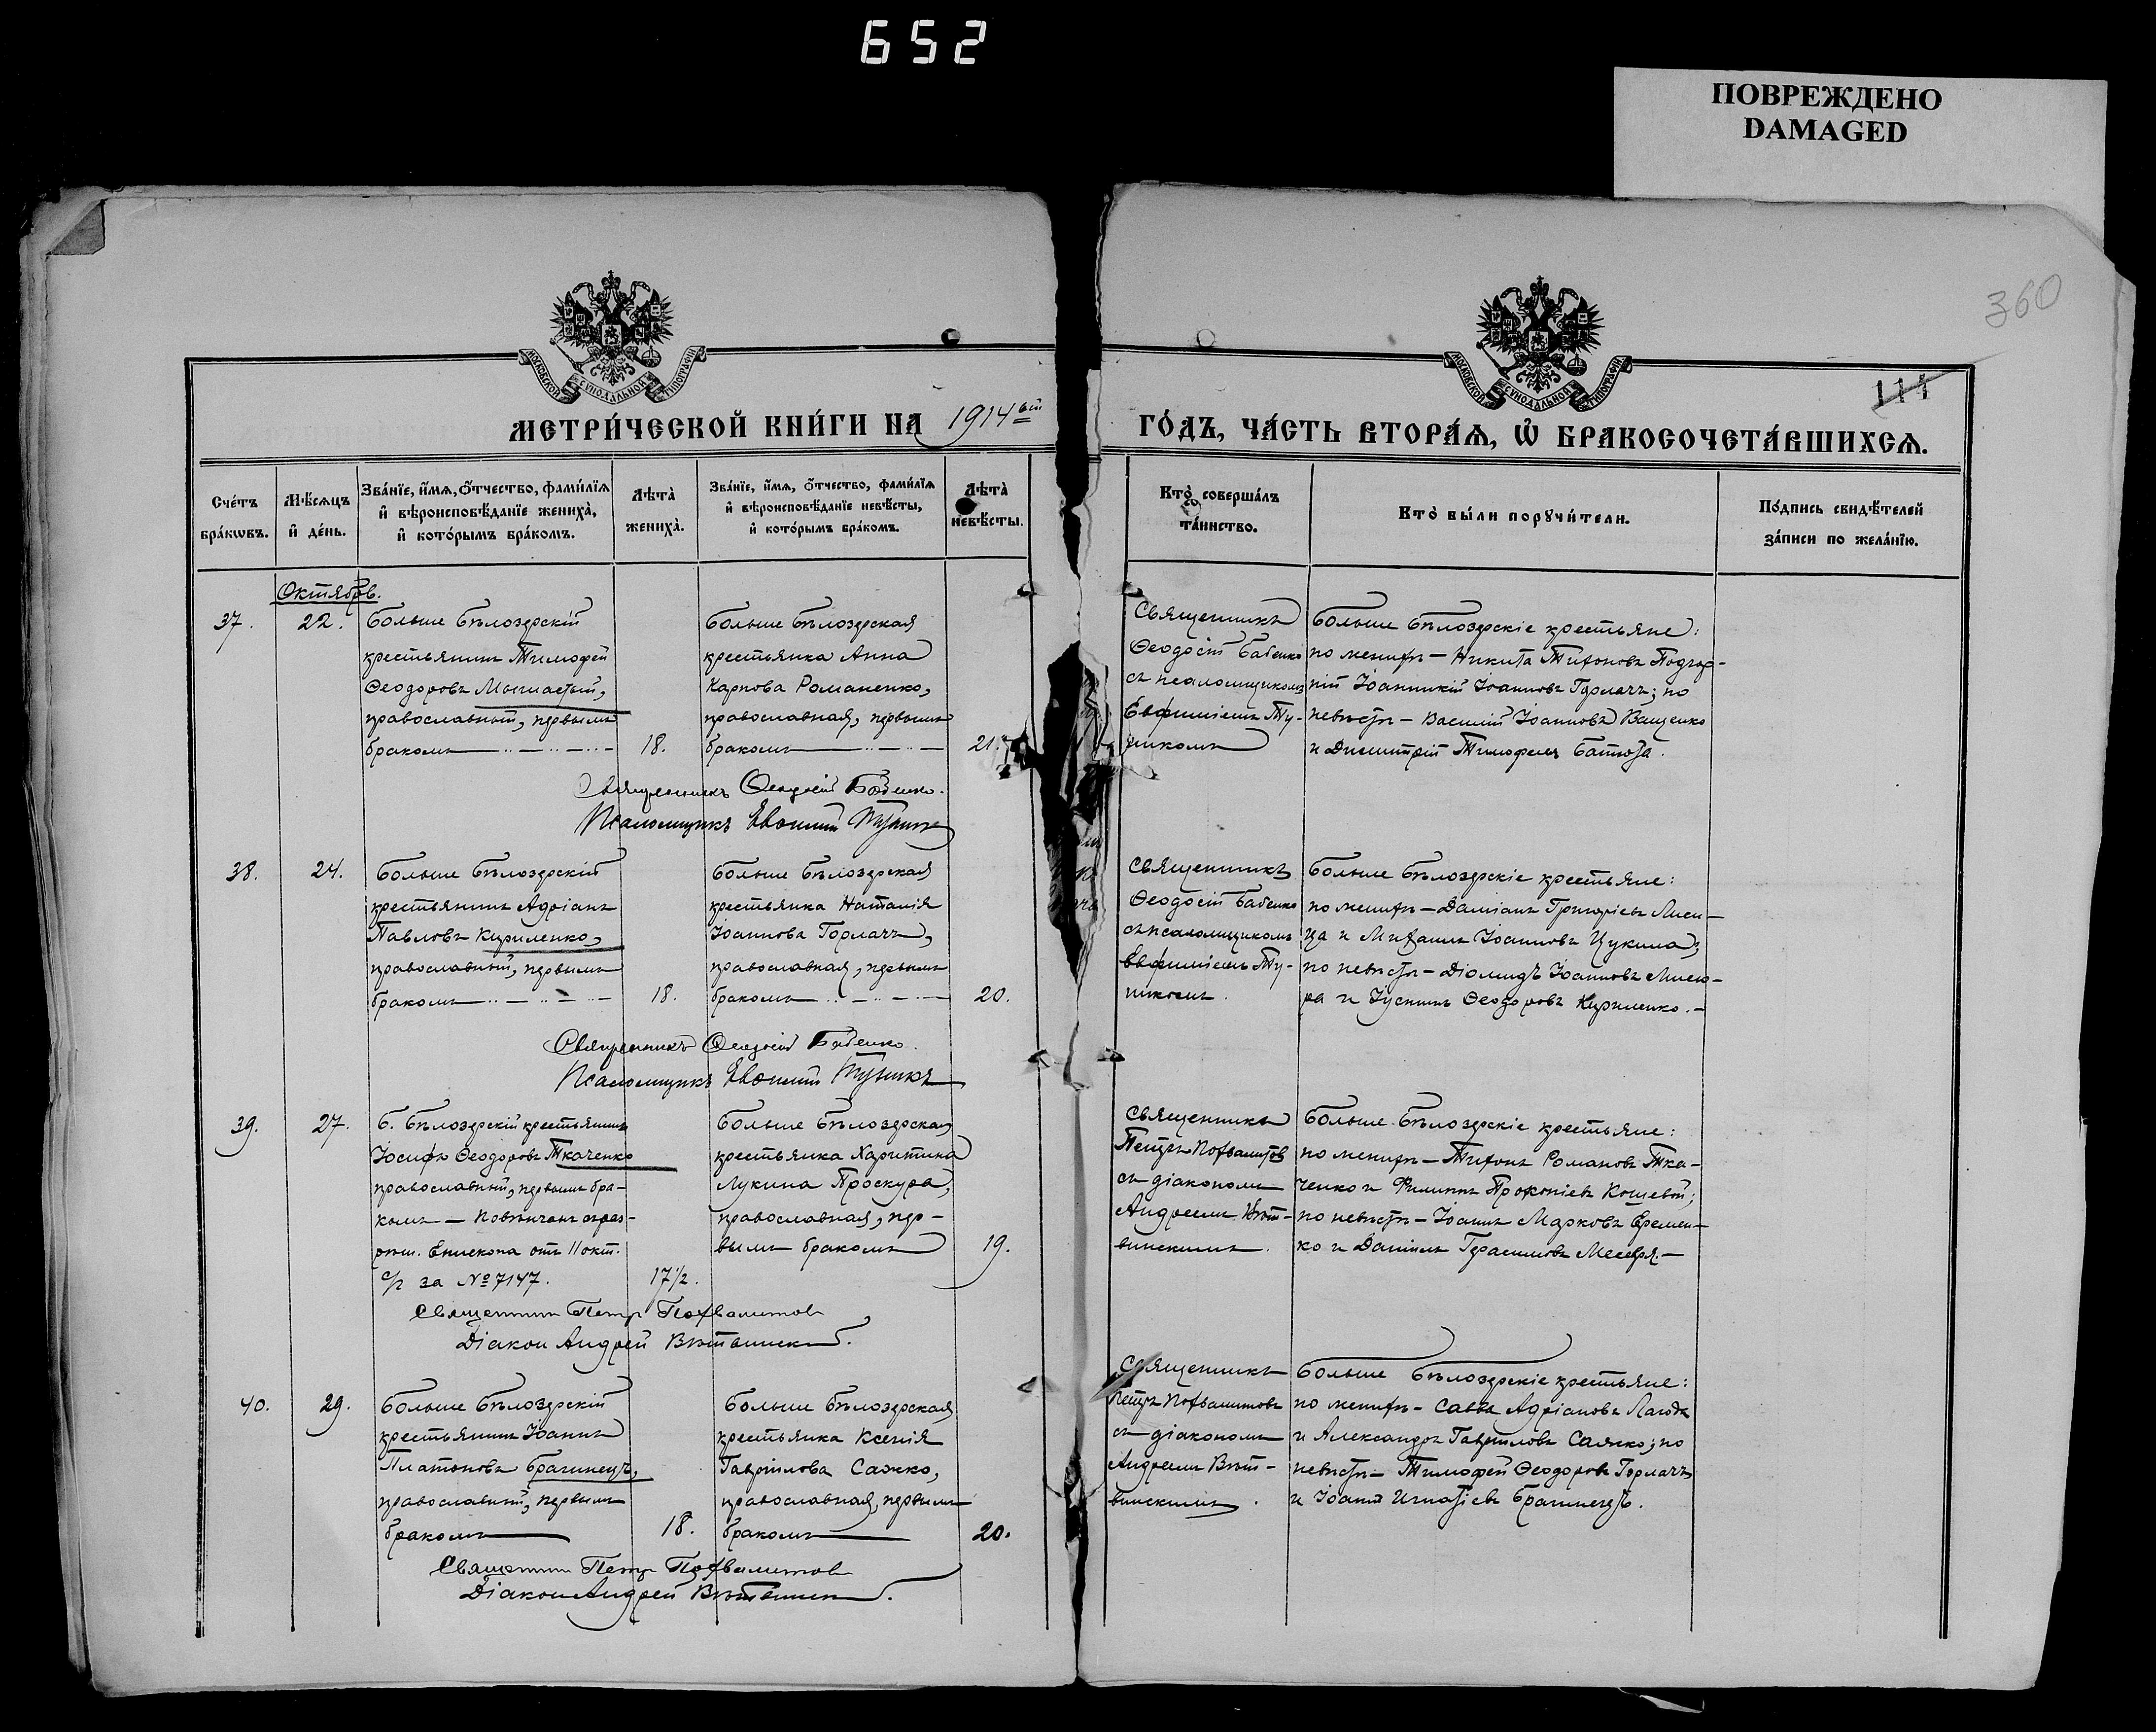 652
ПОВРЕЖДЕНО
DAMAGED
360
МОСКОВСКОЙ СУНОДАЛЬНОЙ ТИПОГРАФІИ
МОСКОВСКОЙ СУНОДАЛЬНОЙ ТИПОГРАФІИ
111
МЕТРИ́ЧЕСКОЙ КНИ́ГИ НА 1914ый
ГО́ДЪ, ЧА́СТЬ ВТОРА́Ѧ, Ѽ БРАКОСОЧЕТА́ВШИХСѦ.
Сче́тъ
бра́кѡвъ.
Мѣ́сѧцъ
и҆ де́нь.
Зва́нїе, и҆́мѧ, ѻ҆́тчество, фами́лїѧ
и҆ вѣроисповѣ́данїе жениха̀,
и҆ кото́рымъ бра́комъ.
Лѣта̀
жениха̀.
Зва́нїе, и҆́мѧ, ѻ҆́тчество, фами́лїѧ
и҆ вѣроисповѣ́данїе невѣ́сты,
и҆ кото́рымъ бра́комъ.
Лѣта̀
невѣ́сты.
Кто̀ соверша́лъ
та́инство.
Кто̀ бы́ли порꙋчи́тели.
По́дпись свидѣ́телей
за́писи по жела́нїю.
Октябрь.
37.
22.
Больше Бѣлозерскій
крестьянинъ Тимофей
Ѳеодоровъ
православный, первымъ
бракомъ
18.
Больше Бѣлозерская
крестьянка Анна
Карпова Романенко,
православная, первымъ
бракомъ
21.
Священникъ
Ѳеодосій Бабенко
съ псаломщикомъ
Евфиміемъ Ту-
никомъ
Больше Бѣлозерскіе крестьяне:
по женихѣ – Никита Тихоновъ Подгор-
ній Іоанникій Іоанновъ Горлачъ; по
невѣстѣ – Василій Іоанновъ Ващенко
и Димитрій Тимофеевъ
Священникъ Ѳеодосій Бабенко.
Псаломщикъ Евѳимій Туникъ
38.
24.
Больше Бѣлозерскій
крестьянинъ Адріанъ
Павловъ Кириленко,
православный, первымъ
бракомъ
18.
Больше Бѣлозерская
крестьянка Наталія
Іоаннова Горлачъ,
православная, первымъ
бракомъ
20.
Священникъ
Ѳеодосій Бабенко
съ псаломщикомъ
Евфиміемъ Ту-
никомъ.
Больше Бѣлозерскіе крестьяне:
по женихѣ – Даміанъ Григоріевъ Лиси-
ца и Михаилъ Іоанновъ
по невѣстѣ – Діомидъ Іоанновъ
и Іустинъ Ѳеодоровъ Кириленко. –
Священникъ Ѳеодосій Бабенко.
Псаломщикъ Евѳимій Туникъ
39.
27.
Б. Бѣлозерскій крестьянинъ
Іосифъ Ѳеодоровъ Ткаченко
православный, первымъ бра-
комъ – Повѣнчанъ съ раз-
рѣш. Епископа отъ 11 окт.
с/г за № 7147.
17½.
Больше Бѣлозерская
крестьянка Харитина
Лукина Проскура,
православная, пер-
вымъ бракомъ
19.
Священникъ
Петръ Похвалитовъ
съ діакономъ
Андреемъ Вѣт-
винскимъ.
Больше Бѣлозерскіе крестьяне:
по женихѣ – Тихонъ Романовъ Тка-
ченко и Филиппъ Прокопіевъ Кошевой;
по невѣстѣ – Іоаннъ Марковъ Еремен-
ко и Даніилъ Герасимовъ
Священникъ Петръ Похвалитовъ
Діаконъ Андрей Вѣтвинскій.
40.
29.
Больше Бѣлозерскій
крестьянинъ Іоаннъ
Платоновъ Брагинецъ,
православный, первымъ
бракомъ
18.
Больше Бѣлозерская
крестьянка Ксенія
Гавріилова Сажко,
православная, первымъ
бракомъ
20.
Священникъ
Петръ Похвалитовъ
съ діакономъ
Андреемъ Вѣт-
винскимъ.
Больше Бѣлозерскіе крестьяне:
по женихѣ – Савва Адріановъ Лагода
и Александръ Гавриловъ Сажко; по
невѣстѣ – Тимофей Ѳеодоровъ Горлачъ
и Іоаннъ Игнатіевъ Брагинецъ.
Священникъ Петръ Похвалитовъ
Діаконъ Андрей Вѣтвинскій.